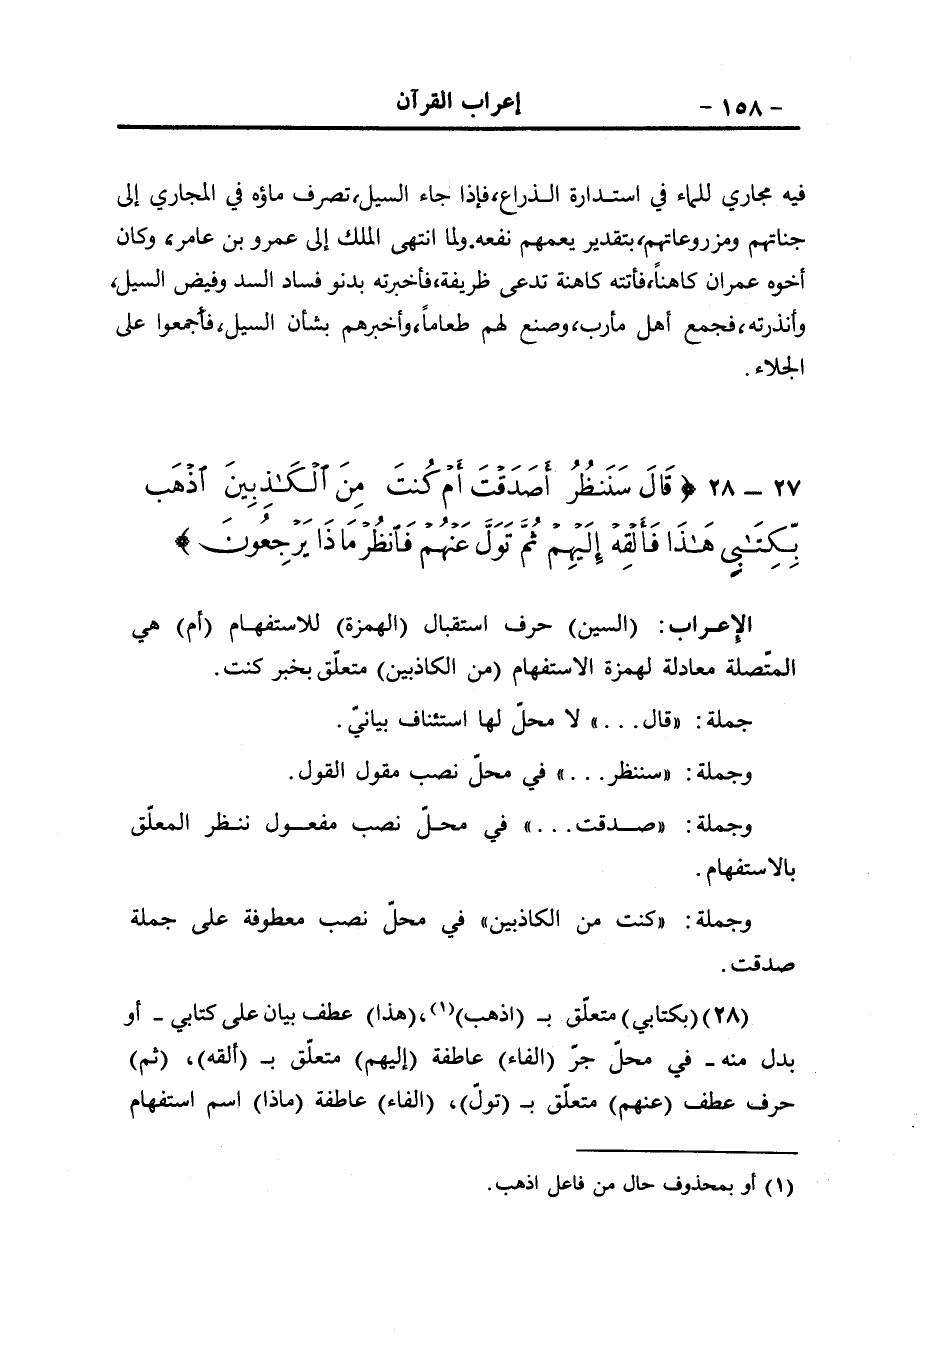 - ١٥٨ - إعراب القرآن
فيه مجاري للماء في استدارة الذراع، فإذا جاء السيل، تصرف ماؤه في المجاري إلى
جناتهم ومزروعاتهم، بتقدير يعمهم نفعه. ولما انتهى الملك إلى عمرو بن عامر، وكان
أخوه عمران كاهناً، فأتته كاهنة تدعى ظريفة، فأخبرته بدنو فساد السد وفيض السيل،
وأنذرته، فجمع أهل مأرب، وصنع لهم طعاماً، وأخبرهم بشأن السيل، فأجمعوا على
الجلاء.
٢٧ – ٢٨ ﴿ قَالَ سَنَنظُرُ أَصَدَقْتَ أَمْ كُنتَ مِنَ ٱلْكَـٰذِبِينَ ٱذْهَب
بِّكِتَـٰبِى هَـٰذَا فَأَلْقِهْ إِلَيْهِمْ ثُمَّ تَوَلَّ عَنْهُمْ فَٱنظُرْ مَاذَا يَرْجِعُونَ ﴾
الإعراب: (السين) حرف استقبال (الهمزة) للاستفهام (أم) هي
المتّصلة معادلة لهمزة الاستفهام (من الكاذبين) متعلّق بخبر كنت.
جملة: «قال...» لا محلّ لها استئناف بيانيّ.
وجملة: «سننظر...» في محلّ نصب مقول القول.
وجملة: «صدقت...» في محلّ نصب مفعول ننظر المعلّق
بالاستفهام.
وجملة: «كنت من الكاذبين» في محلّ نصب معطوفة على جملة
صدقت.
(٢٨) (بكتابي) متعلّق بـ (اذهب)(١)، (هذا) عطف بيان على كتابي - أو
بدل منه - في محلّ جرّ (الفاء) عاطفة (إليهم) متعلّق بـ (ألقه)، (ثم)
حرف عطف (عنهم) متعلّق بـ (تولّ)، (الفاء) عاطفة (ماذا) اسم استفهام
(١) أو بمحذوف حال من فاعل اذهب.